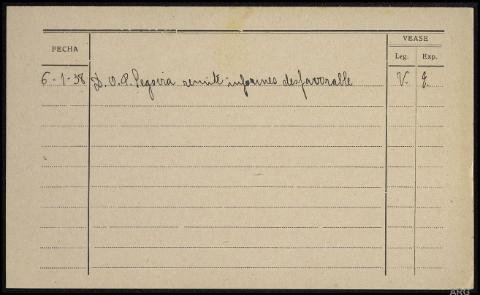 VEASE
FECHA
Leg. Exp.
6-1-38 D. O. P. Segovia remite informes desfavorable V. g.
ARG